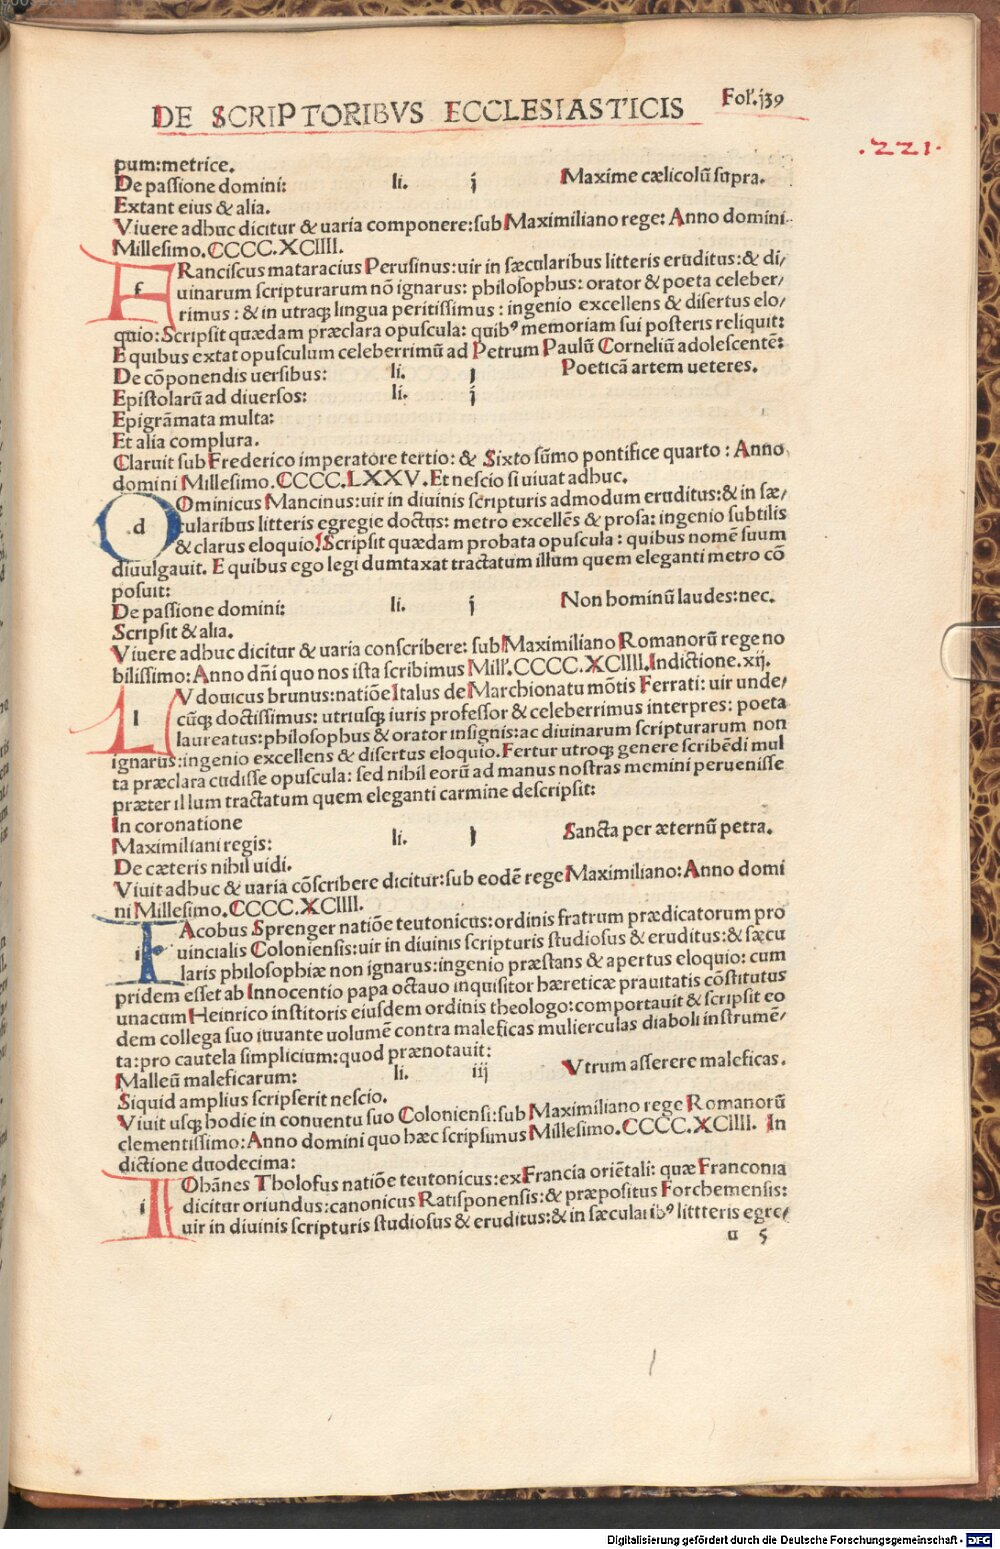 DE SCRIPTORIBVS ECCLESIASTICIS Fol'.j39
.221.
pum:metrice.
De passione domini: li. j Maxime cælicolũ supra.
Extant eius & alia.
Viuere adhuc dicitur & uaria componere:sub Maximiliano rege: Anno domini
Millesimo.CCCC.XCIIII.
f Ranciscus mataracius Perusinus:uir in sæcularibus litteris eruditus:& di/
uinarum scripturarum nõ ignarus: philosophus: orator & poeta celeber/
rimus : & in utraq; lingua peritissimus : ingenio excellens & disertus elo/
quio:Scripsit quædam præclara opuscula: quibꝰ memoriam sui posteris reliquit:
E quibus extat opusculum celeberrimũ ad Petrum Paulũ Corneliũ adolescentẽ:
De cõponendis uersibus: li. j Poeticã artem ueteres.
Epistolarũ ad diuersos: li. j
Epigrãmata multa:
Et alia complura.
Claruit sub Frederico imperatore tertio: & Sixto sũmo pontifice quarto : Anno
domini Millesimo.CCCC.LXXV.Et nescio si uiuat adhuc.
d Ominicus Mancinus:uir in diuinis scripturis admodum eruditus:& in sæ/
cularibus litteris egregie doctus: metro excellẽs & prosa: ingenio subtilis
& clarus eloquio.Scripsit quædam probata opuscula : quibus nomẽ suum
diuulgauit. E quibus ego legi dumtaxat tractatum illum quem eleganti metro cõ
posuit:
De passione domini: li. j Non hominũ laudes:nec.
Scripsit & alia.
Viuere adhuc dicitur & uaria conscribere: sub Maximiliano Romanorũ rege no
bilissimo: Anno dñi quo nos ista scribimus Mill'.CCCC.XCIIII.Indictione.xij.
l Vdouicus brunus:natiõe Italus de Marchionatu mõtis Ferrati: uir unde/
cũq; doctissimus: utriusq; iuris professor & celeberrimus interpres: poeta
laureatus:philosophus & orator insignis:ac diuinarum scripturarum non
ignarus:ingenio excellens & disertus eloquio.Fertur utroq; genere scribẽdi mul
ta præclara cudisse opuscula: sed nihil eorũ ad manus nostras memini peruenisse
præter illum tractatum quem eleganti carmine descripsit:
In coronatione
Maximiliani regis: li. j Sancta per æternũ petra.
De cæteris nihil uidi.
Viuit adhuc & uaria cõscribere dicitur:sub eodẽ rege Maximiliano: Anno domi
ni Millesimo.CCCC.XCIIII.
i Acobus Sprenger natiõe teutonicus:ordinis fratrum prædicatorum pro
uincialis Coloniensis:uir in diuinis scripturis studiosus & eruditus:& sæcu
laris philosophiæ non ignarus:ingenio præstans & apertus eloquio: cum
pridem esset ab Innocentio papa octauo inquisitor hæreticæ prauitatis cõstitutus
unacum Heinrico institoris eiusdem ordinis theologo:comportauit & scripsit eo
dem collega suo iuuante uolumẽ contra maleficas mulierculas diaboli instrumẽ/
ta:pro cautela simplicium:quod prænotauit:
Malleũ maleficarum: li. iij Vtrum asserere maleficas.
Siquid amplius scripserit nescio.
Viuit usq; hodie in conuentu suo Coloniensi:sub Maximiliano rege Romanorũ
clementissimo:Anno domini quo hæc scripsimus Millesimo.CCCC.XCIIII. In
dictione duodecima:
i Ohãnes Tholofus natiõe teutonicus:ex Francia oriẽtali: quæ Franconia
dicitur oriundus:canonicus Ratisponensis:& præpositus Forchemensis:
uir in diuinis scripturis studiosus & eruditus:& in sæcularibꝰ littteris egre/
u 5
Digitalisierung gefördert durch die Deutsche Forschungsgemeinschaft - DFG